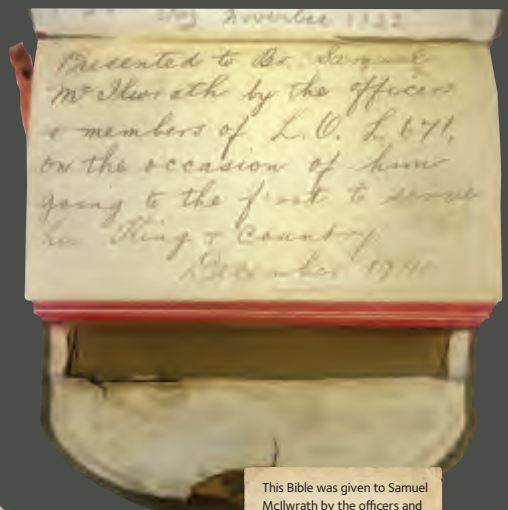 November 1922
Presented to Br. Samuel
McIlwrath by the officers
& members of L. O. L 671,
on the occasion of him
going to the front to serve
his King & Country
December 19
This Bible was given to Samuel
McIlwrath by the officers and